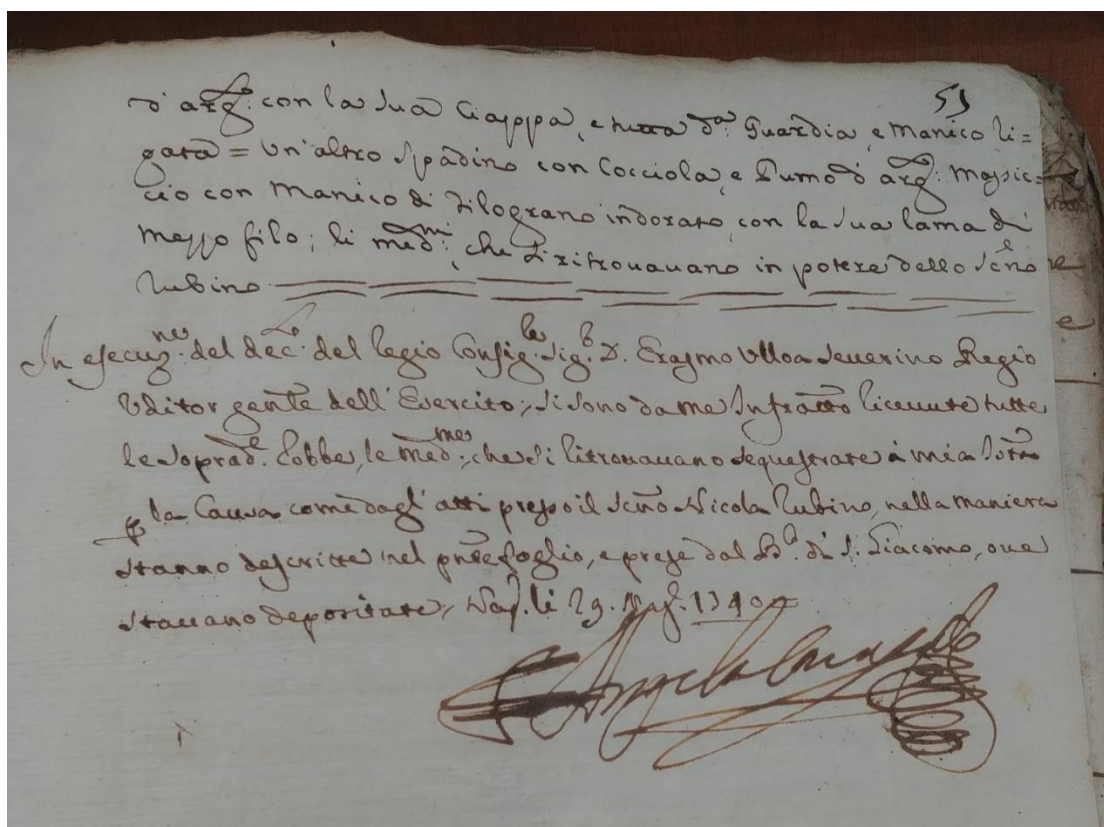 53
d'arg:to con la sua Ciappa, e tutta d:a Guardia, e Manico li=
gata = Un'altro Spadino con Cocciola, e Pumo d'arg:to Massic=
cio con Manico di Filograno indorato, con la sua lama di
mezzo filo; li med:mi, che si ritrovavano in potere dello Sc:no
Rubino
In esecuz:ne del dec:to del Regio Consig:re Sig:r D. Erasmo Ulloa Severino Regio
Uditor gen̄le dell'Esercito; si sono da me Infratto ricevute tutte
le soprad:e Robbe, le med:me, che si ritrovavano sequestrate à mia
p la Causa come dagl'atti presso il Sc̄no Nicola Rubino, nella maniera
stanno descritte nel pn̄te foglio, e prese dal B:co di S. Giacomo, ove
stavano depositate; Nap. li 29. 1740
Angelo